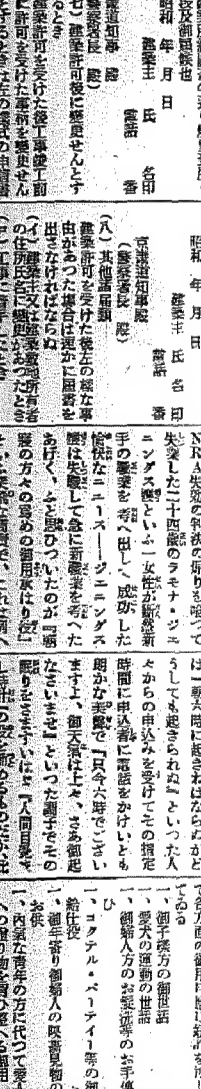 段及御屆候也
昭和 年 月 日
建築主 氏 名印
電話 番
京畿道知事 殿
(警察署長 殿)
(七)建築許可後に變更せんとす
るとき
建築許可を受けた後工事竣工前
に許可を受けた事柄を變更せん
とするときは左の樣式の申請書
昭和 年 月 日
建築主 氏 名 印
電話 番
京畿道知事殿
(警察署長 殿)
(八)其他諸屆類
建築許可を受けた後左の樣な事
由があつた場合は速かに屆書を
出さなければならぬ
(イ)建築主又は建築敷地所有者
の住所氏名に變更があつたとき
(ロ)工事に着手したとき
NRA失効の判決の煽りを喰つて
失業した二十四歳のラモナ・ジエ
ニングス孃といふ一女性が斷然新
手の職業を考へ出して成功した
愉快なニユース――ジエニングス
孃は失職して急に新職業を考へた
あげく、ふと思ひついたのが『朝
寢の方々の爲めの御用承はり役』
は一朝六時に起きねばならぬがど
うしても起きられぬ』といつた人
々からの申込みを受けてその指定
時間に申込者に電話をかけいとも
朗かな美聲で『只今六時でござい
ますよ、御天氣は上々、さあ御起
なさいませ』といつた調子でその
眠りをさますいはゞ『人間目覺
し時計』の役を勤めるものだが
てゐる
一、御子樣方の御世話
一、愛犬の運動の世話
一、御婦人方のお髪洗等のお手傳
ひ
一、コクテル・パーテイー等の御
給仕役
一、御年寄り御婦人の映畫見物の
お供
一、内氣な靑年の方に代つて愛人
への贈り物を買ひ整へる御用